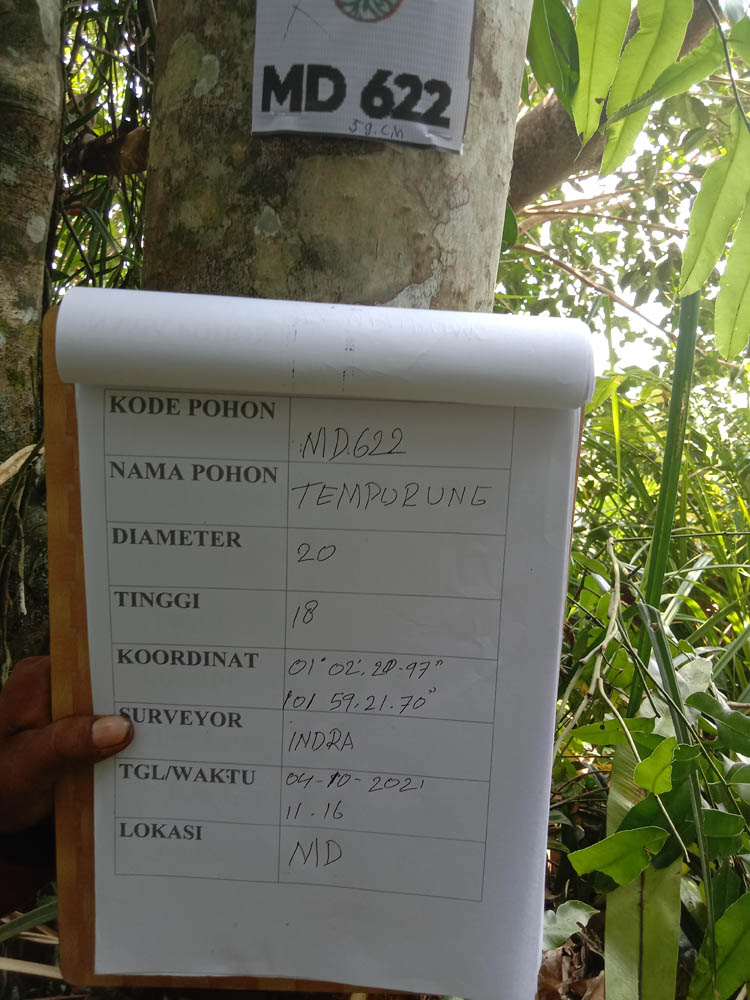 MD 622
59.CM
KODE POHON MD.622
NAMA POHON TEMPURUNG
DIAMETER 20
TINGGI 18
KOORDINAT 01° 02'. 20.97"
101 59.21.70"
SURVEYOR INDRA
TGL/WAKTU 04-10-2021
11.16
LOKASI MD